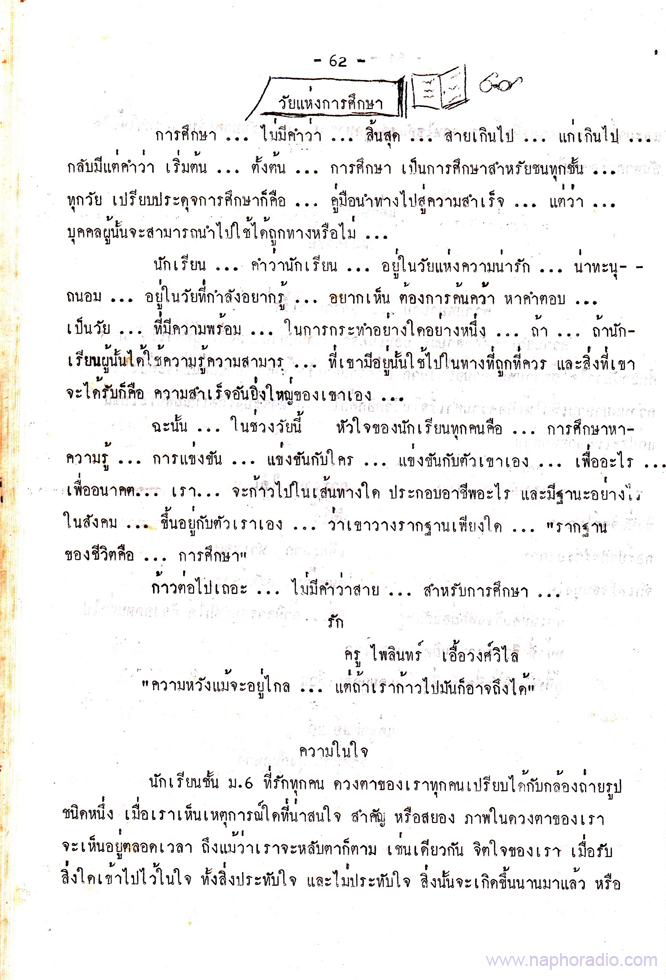 - 62 -
วัยแห่งการศึกษา
การศึกษา ... ไม่มีคำว่า ... สิ้นสุด ... สายเกินไป ... แก่เกินไป ...
กลับมีแต่คำว่า เริ่มต้น ... ตั้งต้น ... การศึกษา เป็นการศึกษาสำหรับชนทุกชั้น ...
ทุกวัย เปรียบประดุจการศึกษาก็คือ ... คู่มือนำทางไปสู่ความสำเร็จ ... แต่ว่า ...
บุคคลผู้นั้นจะสามารถนำไปใช้ได้ถูกทางหรือไม่ ...
นักเรียน ... คำว่านักเรียน ... อยู่ในวัยแห่งความน่ารัก ... น่าทะนุ- -
ถนอม ... อยู่ในวัยที่กำลังอยากรู้ ... อยากเห็น ต้องการค้นคว้า หาคำตอบ ...
เป็นวัย ... ที่มีความพร้อม ... ในการกระทำอย่างใดอย่างหนึ่ง ... ถ้า ... ถ้านัก-
เรียนผู้นั้นได้ใช้ความรู้ความสามาร ... ที่เขามีอยู่นั้นใช้ไปในทางที่ถูกที่ควร และสิ่งที่เขา
จะได้รับก็คือ ความสำเร็จอันยิ่งใหญ่ของเขาเอง ...
ฉะนั้น ... ในช่วงวัยนี้ หัวใจของนักเรียนทุกคนคือ ... การศึกษาหา-
ความรู้ ... การแข่งขัน ... แข่งขันกับใคร ... แข่งขันกับตัวเขาเอง ... เพื่ออะไร ...
เพื่ออนาคต... เรา... จะก้าวไปในเส้นทางใด ประกอบอาชีพอะไร และมีฐานะอย่างไร
ในสังคม ... ขึ้นอยู่กับตัวเราเอง ... ว่าเขาวางรากฐานเพียงใด ... "รากฐาน
ของชีวิตคือ ... การศึกษา"
ก้าวต่อไปเถอะ ... ไม่มีคำว่าสาย ... สำหรับการศึกษา ...
รัก
ครู ไพลินทร์ เอื้อวงศ์วิไล
"ความหวังแม้จะอยู่ไกล ... แต่ถ้าเราก้าวไปมันก็อาจถึงได้"
ความในใจ
นักเรียนชั้น ม.6 ที่รักทุกคน ดวงตาของเราทุกคนเปรียบได้กับกล้องถ่ายรูป
ชนิดหนึ่ง เมื่อเราเห็นเหตุการณ์ใดที่น่าสนใจ สำคัญ หรือสยอง ภาพในดวงตาของเรา
จะเห็นอยู่ตลอดเวลา ถึงแม้ว่าเราจะหลับตาก็ตาม เช่นเดียวกัน จิตใจของเรา เมื่อรับ
สิ่งใดเข้าไปไว้ในใจ ทั้งสิ่งประทับใจ และไม่ประทับใจ สิ่งนั้นจะเกิดขึ้นนานมาแล้ว หรือ
www.naphoradio.com